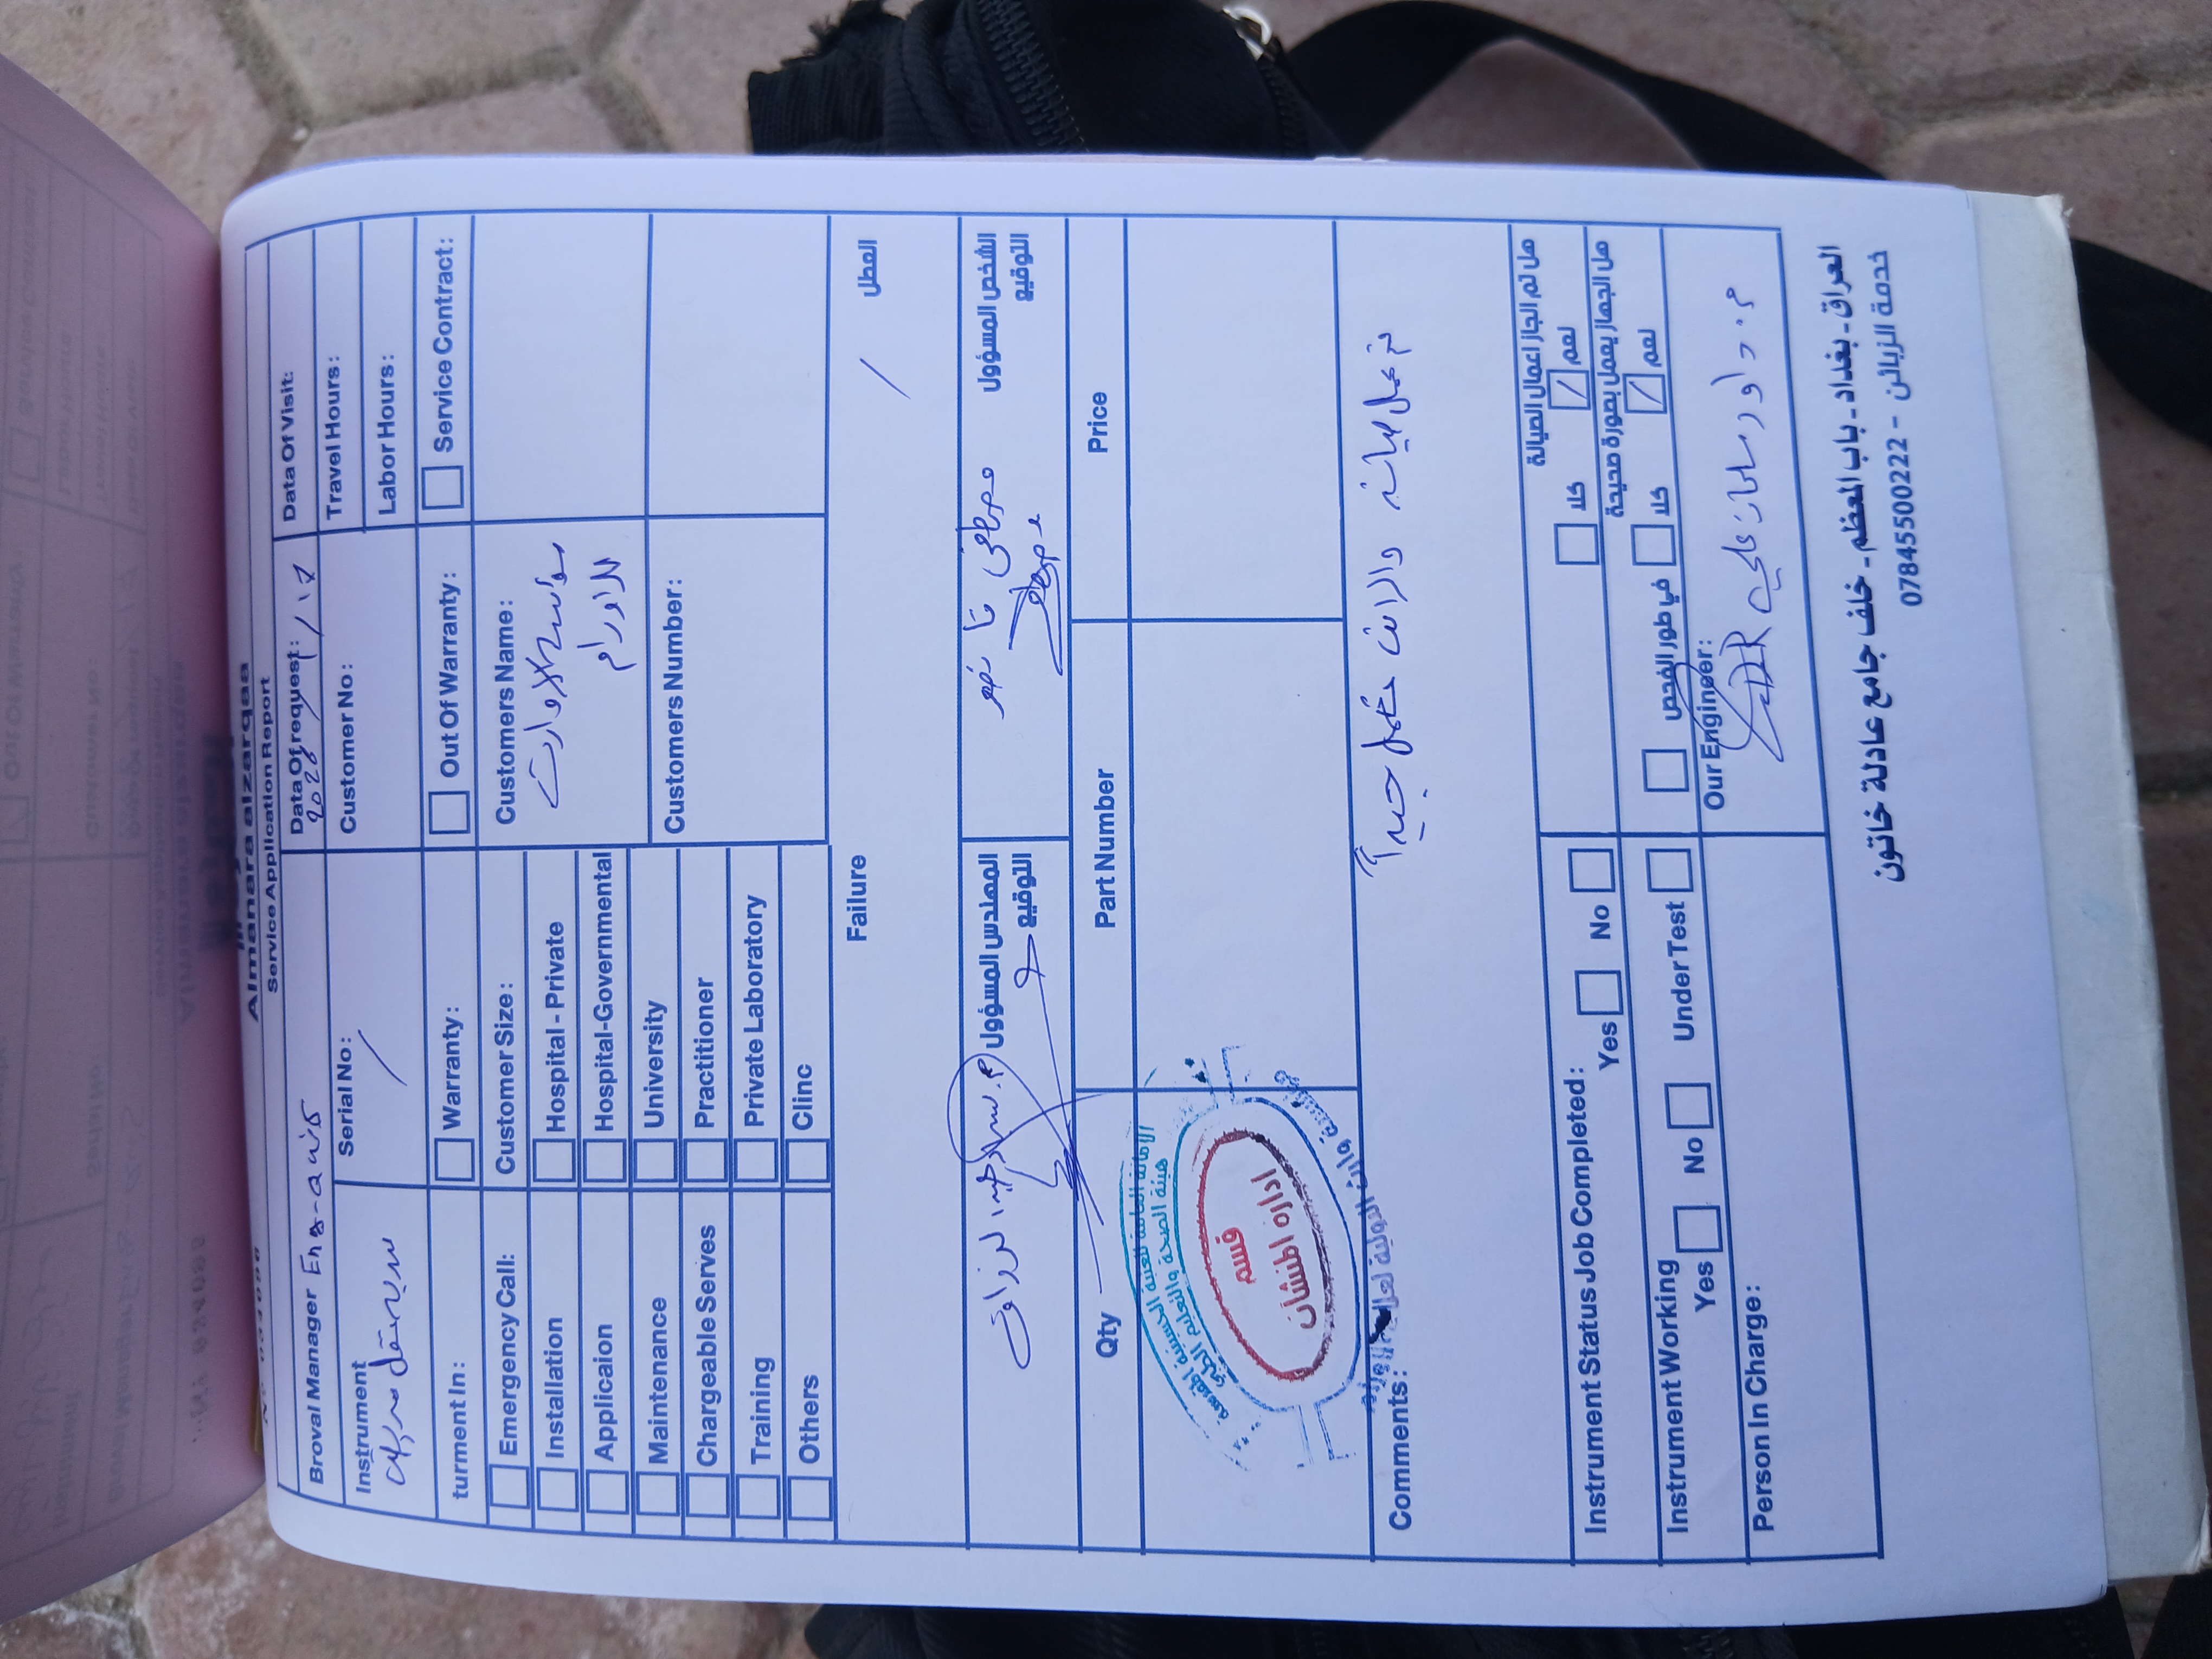 Almanara alzarqaa
Service Application Report
Broval Manager Eng-
Data Of request:
2026 / 1
Data Of Visit:
Instrument
Serial No: /
Customer No:
Travel Hours:
Labor Hours:
turment In:
Warranty:
Out Of Warranty:
Service Contract:
Emergency Call:
Installation
Applicaion
Maintenance
Chargeable Serves
Training
Others
Customer Size:
Hospital - Private
Hospital-Governmental
University
Practitioner
Private Laboratory
Clinc
Customers Name:
للاورام
Customers Number:
Failure
العطل
/
المهندس المسؤول
التوقيع
الشخص المسؤول
مصطفى
التوقيع
Qty
Part Number
Price
الامانة العامة للعتبة الحسينية المقدسة
هيئة الصحة والتعليم الطبي
قسم
ادارة المنشآت
Comments:
تم عمل صيانة والرائت تعمل جيداً
Instrument Status Job Completed:
Yes
No
هل تم انجاز اعمال الصيانة
كلا
نعم
Instrument Working
Yes
No
Under Test
هل الجهاز يعمل بصورة صحيحة
في طور الفحص
كلا
نعم
Person In Charge:
Our Engineer:
العراق - بغداد - باب المعظم - خلف جامع عادلة خاتون
خدمة الزبائن - 07845500222